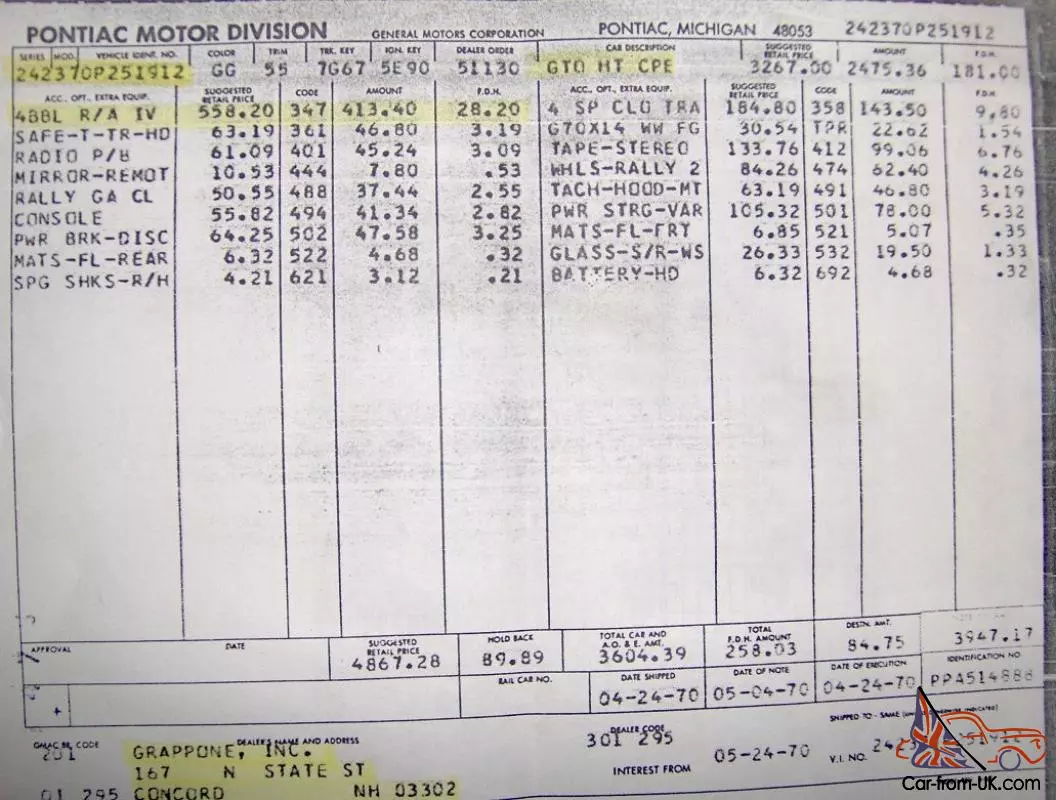 PONTIAC MOTOR DIVISION GENERAL MOTORS CORPORATION PONTIAC, MICHIGAN 48053 242370P251912
SERIES MOD. VEHICLE IDENT. NO. COLOR TRIM TRK. KEY IGN. KEY DEALER ORDER CAR DESCRIPTION SUGGESTED RETAIL PRICE AMOUNT F.D.H.
242370P251912 GG 55 7G67 5E90 51130 GTO HT CPE 3267.00 2475.36 181.00
ACC. OPT. EXTRA EQUIP. SUGGESTED RETAIL PRICE CODE AMOUNT F.D.H. ACC. OPT. EXTRA EQUIP. SUGGESTED RETAIL PRICE CODE AMOUNT F.D.H.
4BBL R/A IV 558.20 347 413.40 28.20 4 SP CLO TRA 184.80 358 143.50 9.80
SAFE-T-TR-HD 63.19 361 46.80 3.19 G70X14 WW FG 30.54 TPR 22.62 1.54
RADIO P/B 61.09 401 45.24 3.09 TAPE-STEREO 133.76 412 99.06 6.76
MIRROR-REMOT 10.53 444 7.80 .53 WHLS-RALLY 2 84.26 474 62.40 4.26
RALLY GA CL 50.55 488 37.44 2.55 TACH-HOOD-MT 63.19 491 46.80 3.19
CONSOLE 55.82 494 41.34 2.82 PWR STRG-VAR 105.32 501 78.00 5.32
PWR BRK-DISC 64.25 502 47.58 3.25 MATS-FL-FRT 6.85 521 5.07 .35
MATS-FL-REAR 6.32 522 4.68 .32 GLASS-S/R-WS 26.33 532 19.50 1.33
SPG SHKS-R/H 4.21 621 3.12 .21 BATTERY-HD 6.32 692 4.68 .32
APPROVAL DATE SUGGESTED RETAIL PRICE HOLD BACK TOTAL CAR AND A.O. & E. AMT. TOTAL F.D.H. AMOUNT DESTN. AMT.
4867.28 89.89 3604.39 258.03 84.75 3947.17
RAIL CAR NO. DATE SHIPPED DATE OF NOTE DATE OF EXECUTION IDENTIFICATION NO
+ 04-24-70 05-04-70 04-24-70 PPA514888
GMAC BR. CODE DEALER'S NAME AND ADDRESS DEALER CODE SHIPPED TO - SAME
201 GRAPPONE, INC. 301 295
167 N STATE ST INTEREST FROM 05-24-70 V.I. NO.
01 295 CONCORD NH 03302
Car-from-UK.com